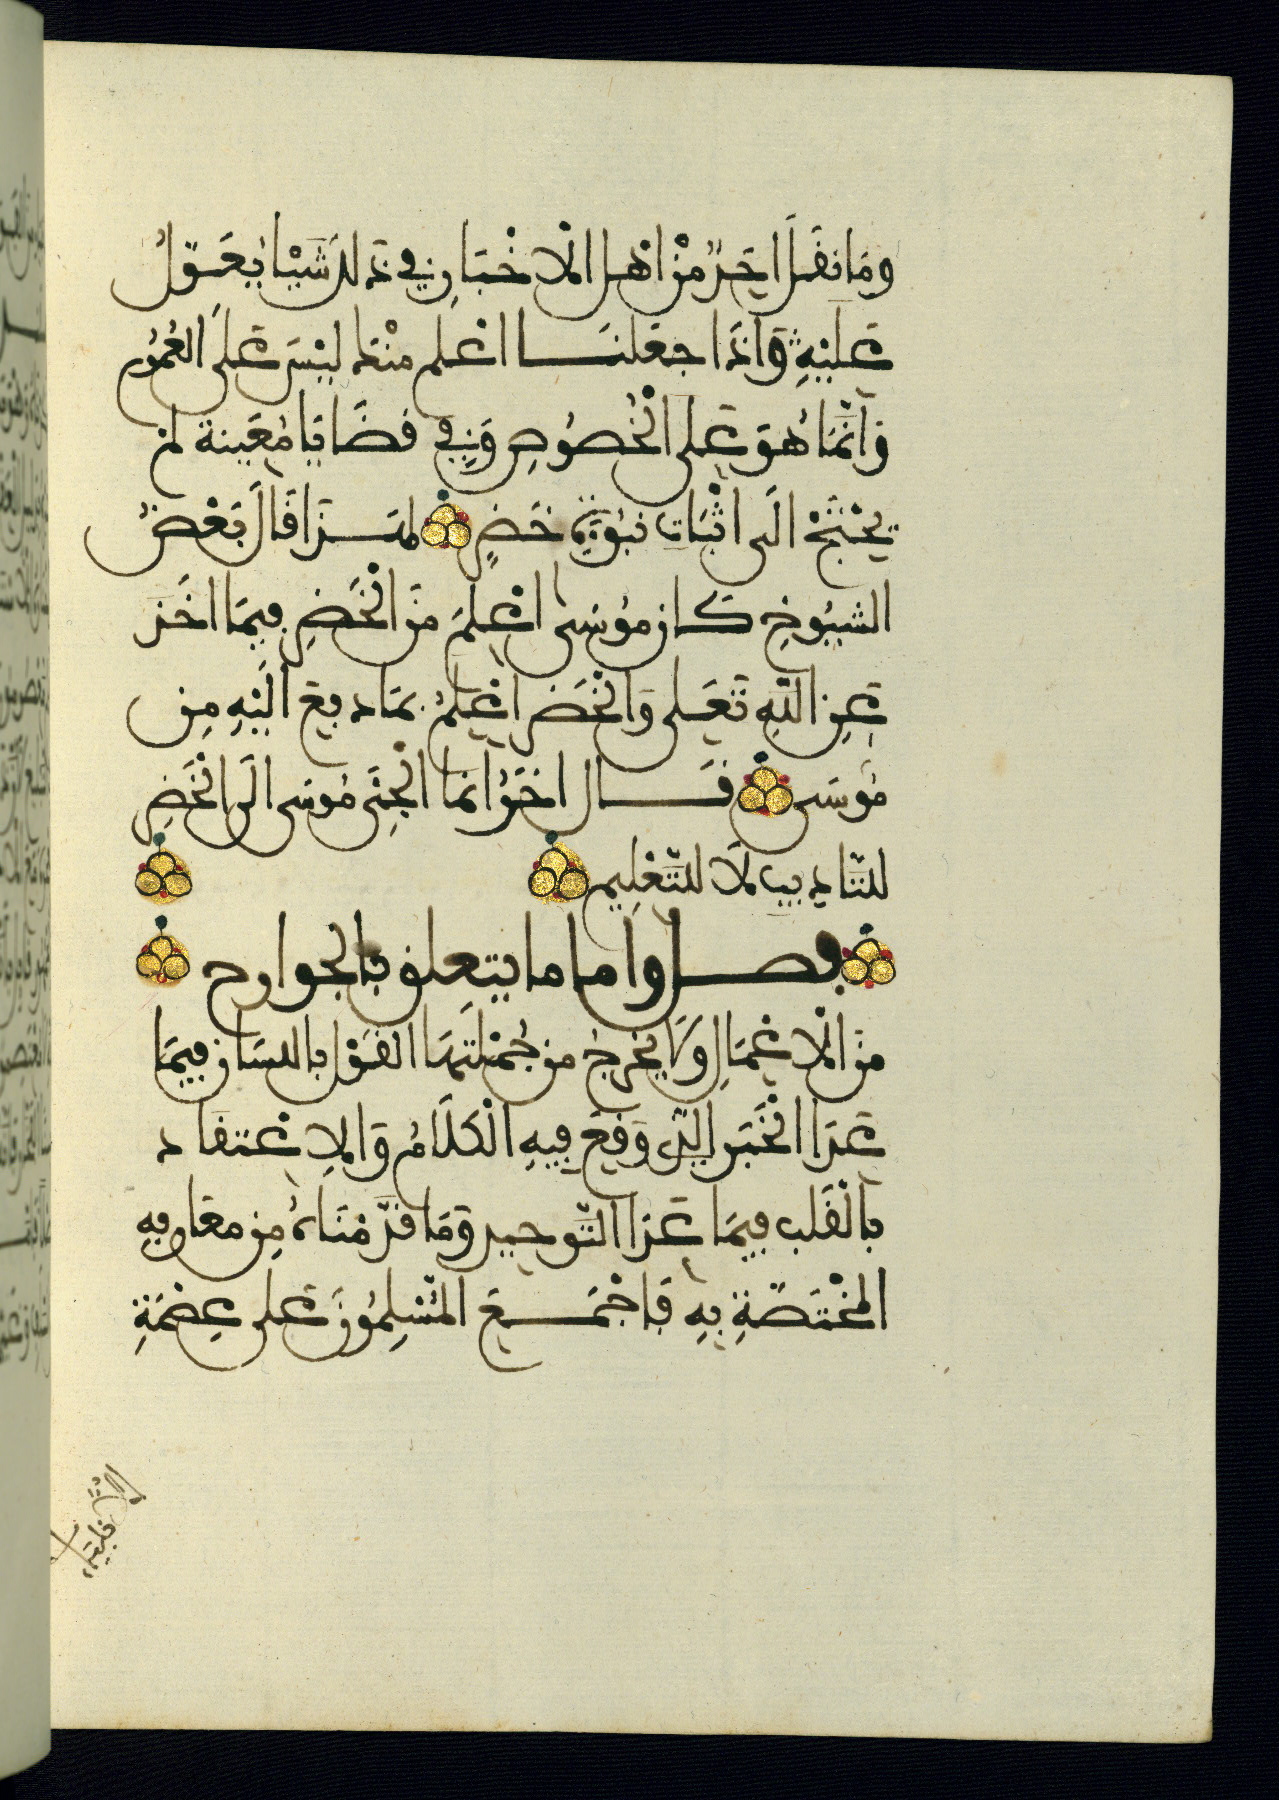 وما نقل احد من اهل الاخبار في ذلك شيئا يعول
عليه واذا جعلنا اعلم منك ليس على العموم
وانما هو على الخصوص وفي قضايا معينة لم
يحتج الى اثبات نبوة خضر لهذا قال بعض
الشيوخ كان موسى اعلم من الخضر فيما اخذ
عن الله تعلى والخضر اعلم بما دفع اليه من
موسى قال اخر انما الجئ موسى الى الخضر
للتاديب لا للتعليم
فصل واما ما يتعلق بالجوارح
من الاعمال ولا يخرج من جملتها القول باللسان فيما
عدا الخبر الذي وقع فيه الكلام والاعتقاد
بالقلب فيما عدا التوحيد وما قدمناه من معارفه
المختصة به فاجمع المسلمون على عصمة